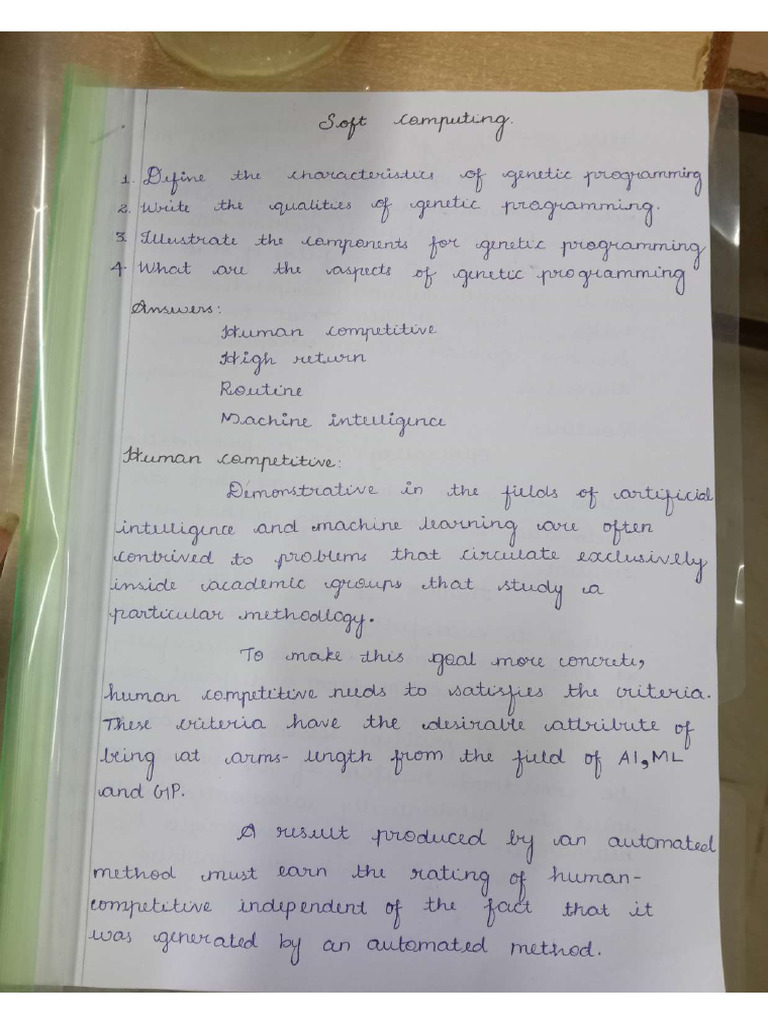 Soft computing.
1. Define the characteristics of genetic programming
2. Write the qualities of genetic programming.
3. Illustrate the components for genetic programming
4. What are the aspects of genetic programming
Answers:
Human competitive
High return
Routine
Machine intelligence
Human competitive:
Demonstrative in the fields of artificial
intelligence and machine learning are often
contrived to problems that circulate exclusively
inside academic groups that study a
particular methodlogy.
To make this goal more concrete,
human competitive needs to satisfies the criteria.
These criteria have the desirable attribute of
being at arms-length from the field of AI, ML
and GP.
A result produced by an automated
method must earn the rating of human-
competitive independent of the fact that it
was generated by an automated method.